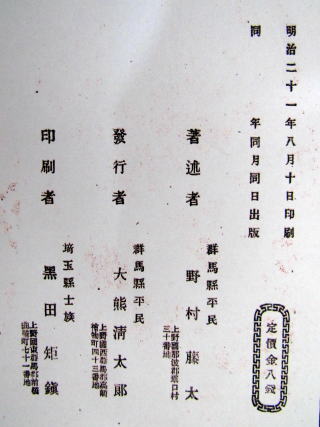 明治二十一年八月十日印刷
同年同月同日出版
定價金八錢
著述者
群馬縣平民
野村藤太
上野國那波郡堀口村
三十番地
發行者
群馬縣平民
大熊清太郎
上野國西群馬郡高崎
檜物町四十三番地
印刷者
埼玉縣士族
黑田矩鎭
上野國東群馬郡前橋
町七十一番地